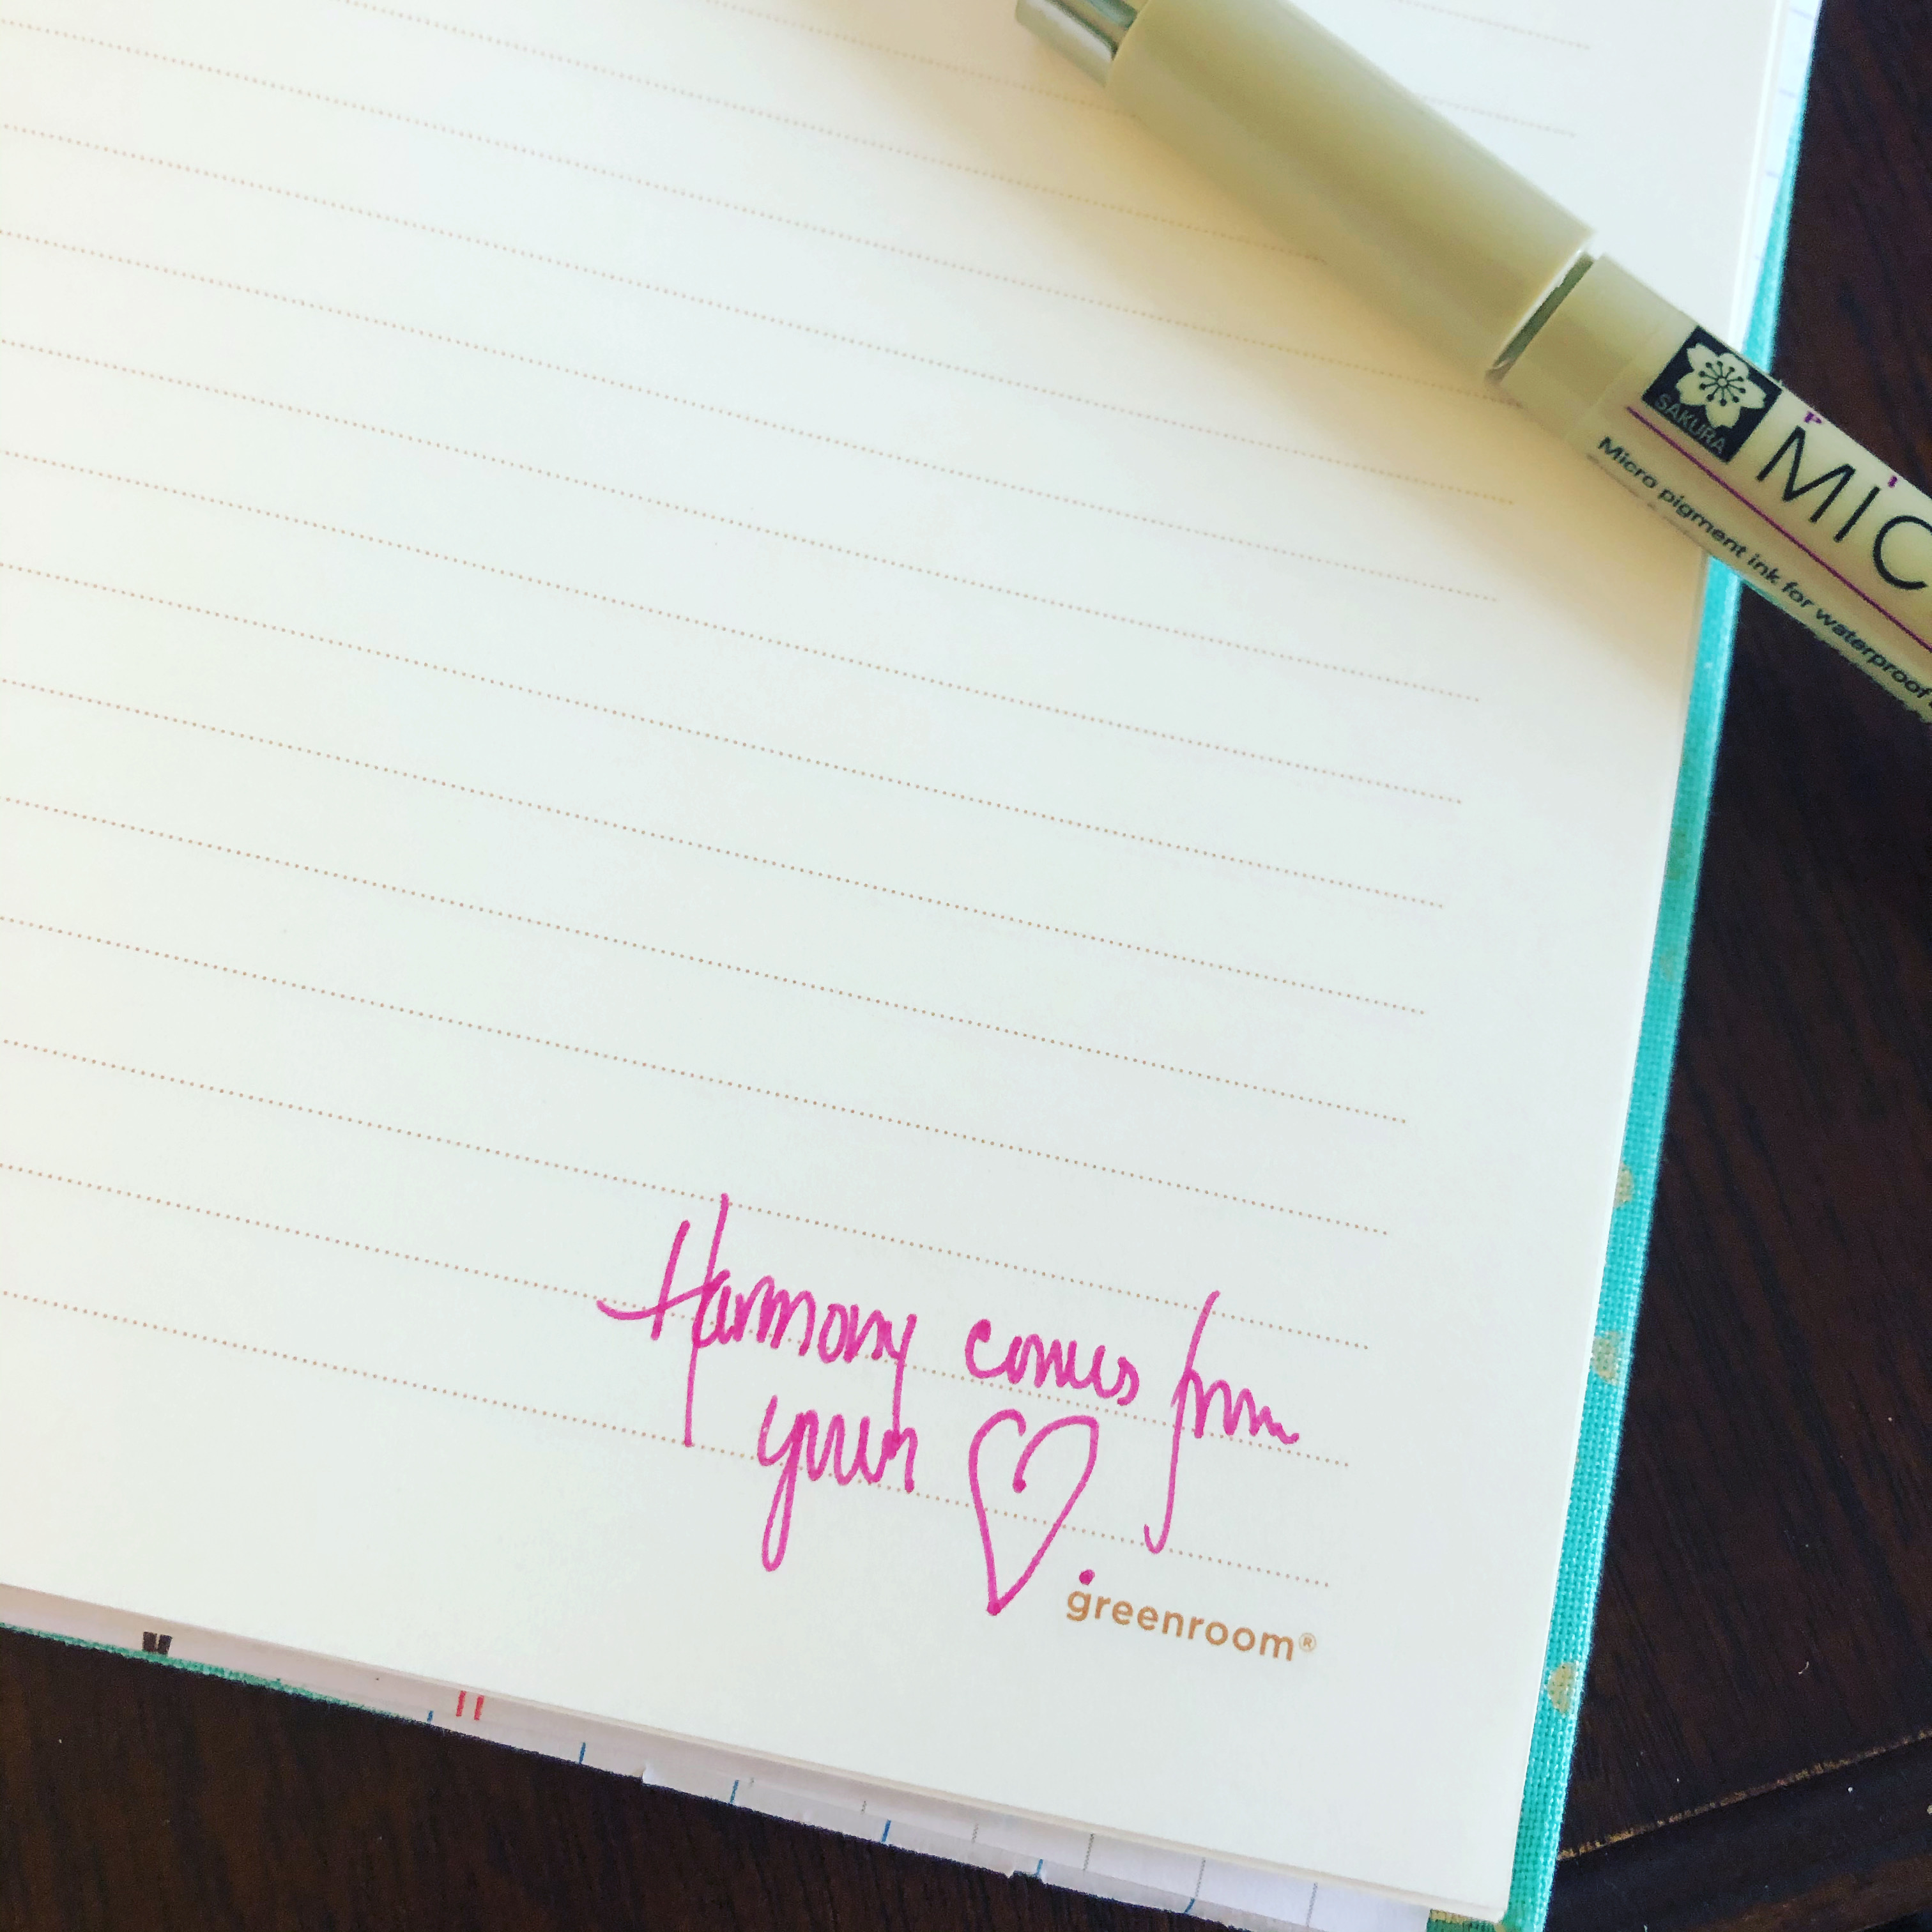 SAKURA
P I
MIC
Micro pigment ink for waterproof
Harmony comes from
your ♡.
greenroom®